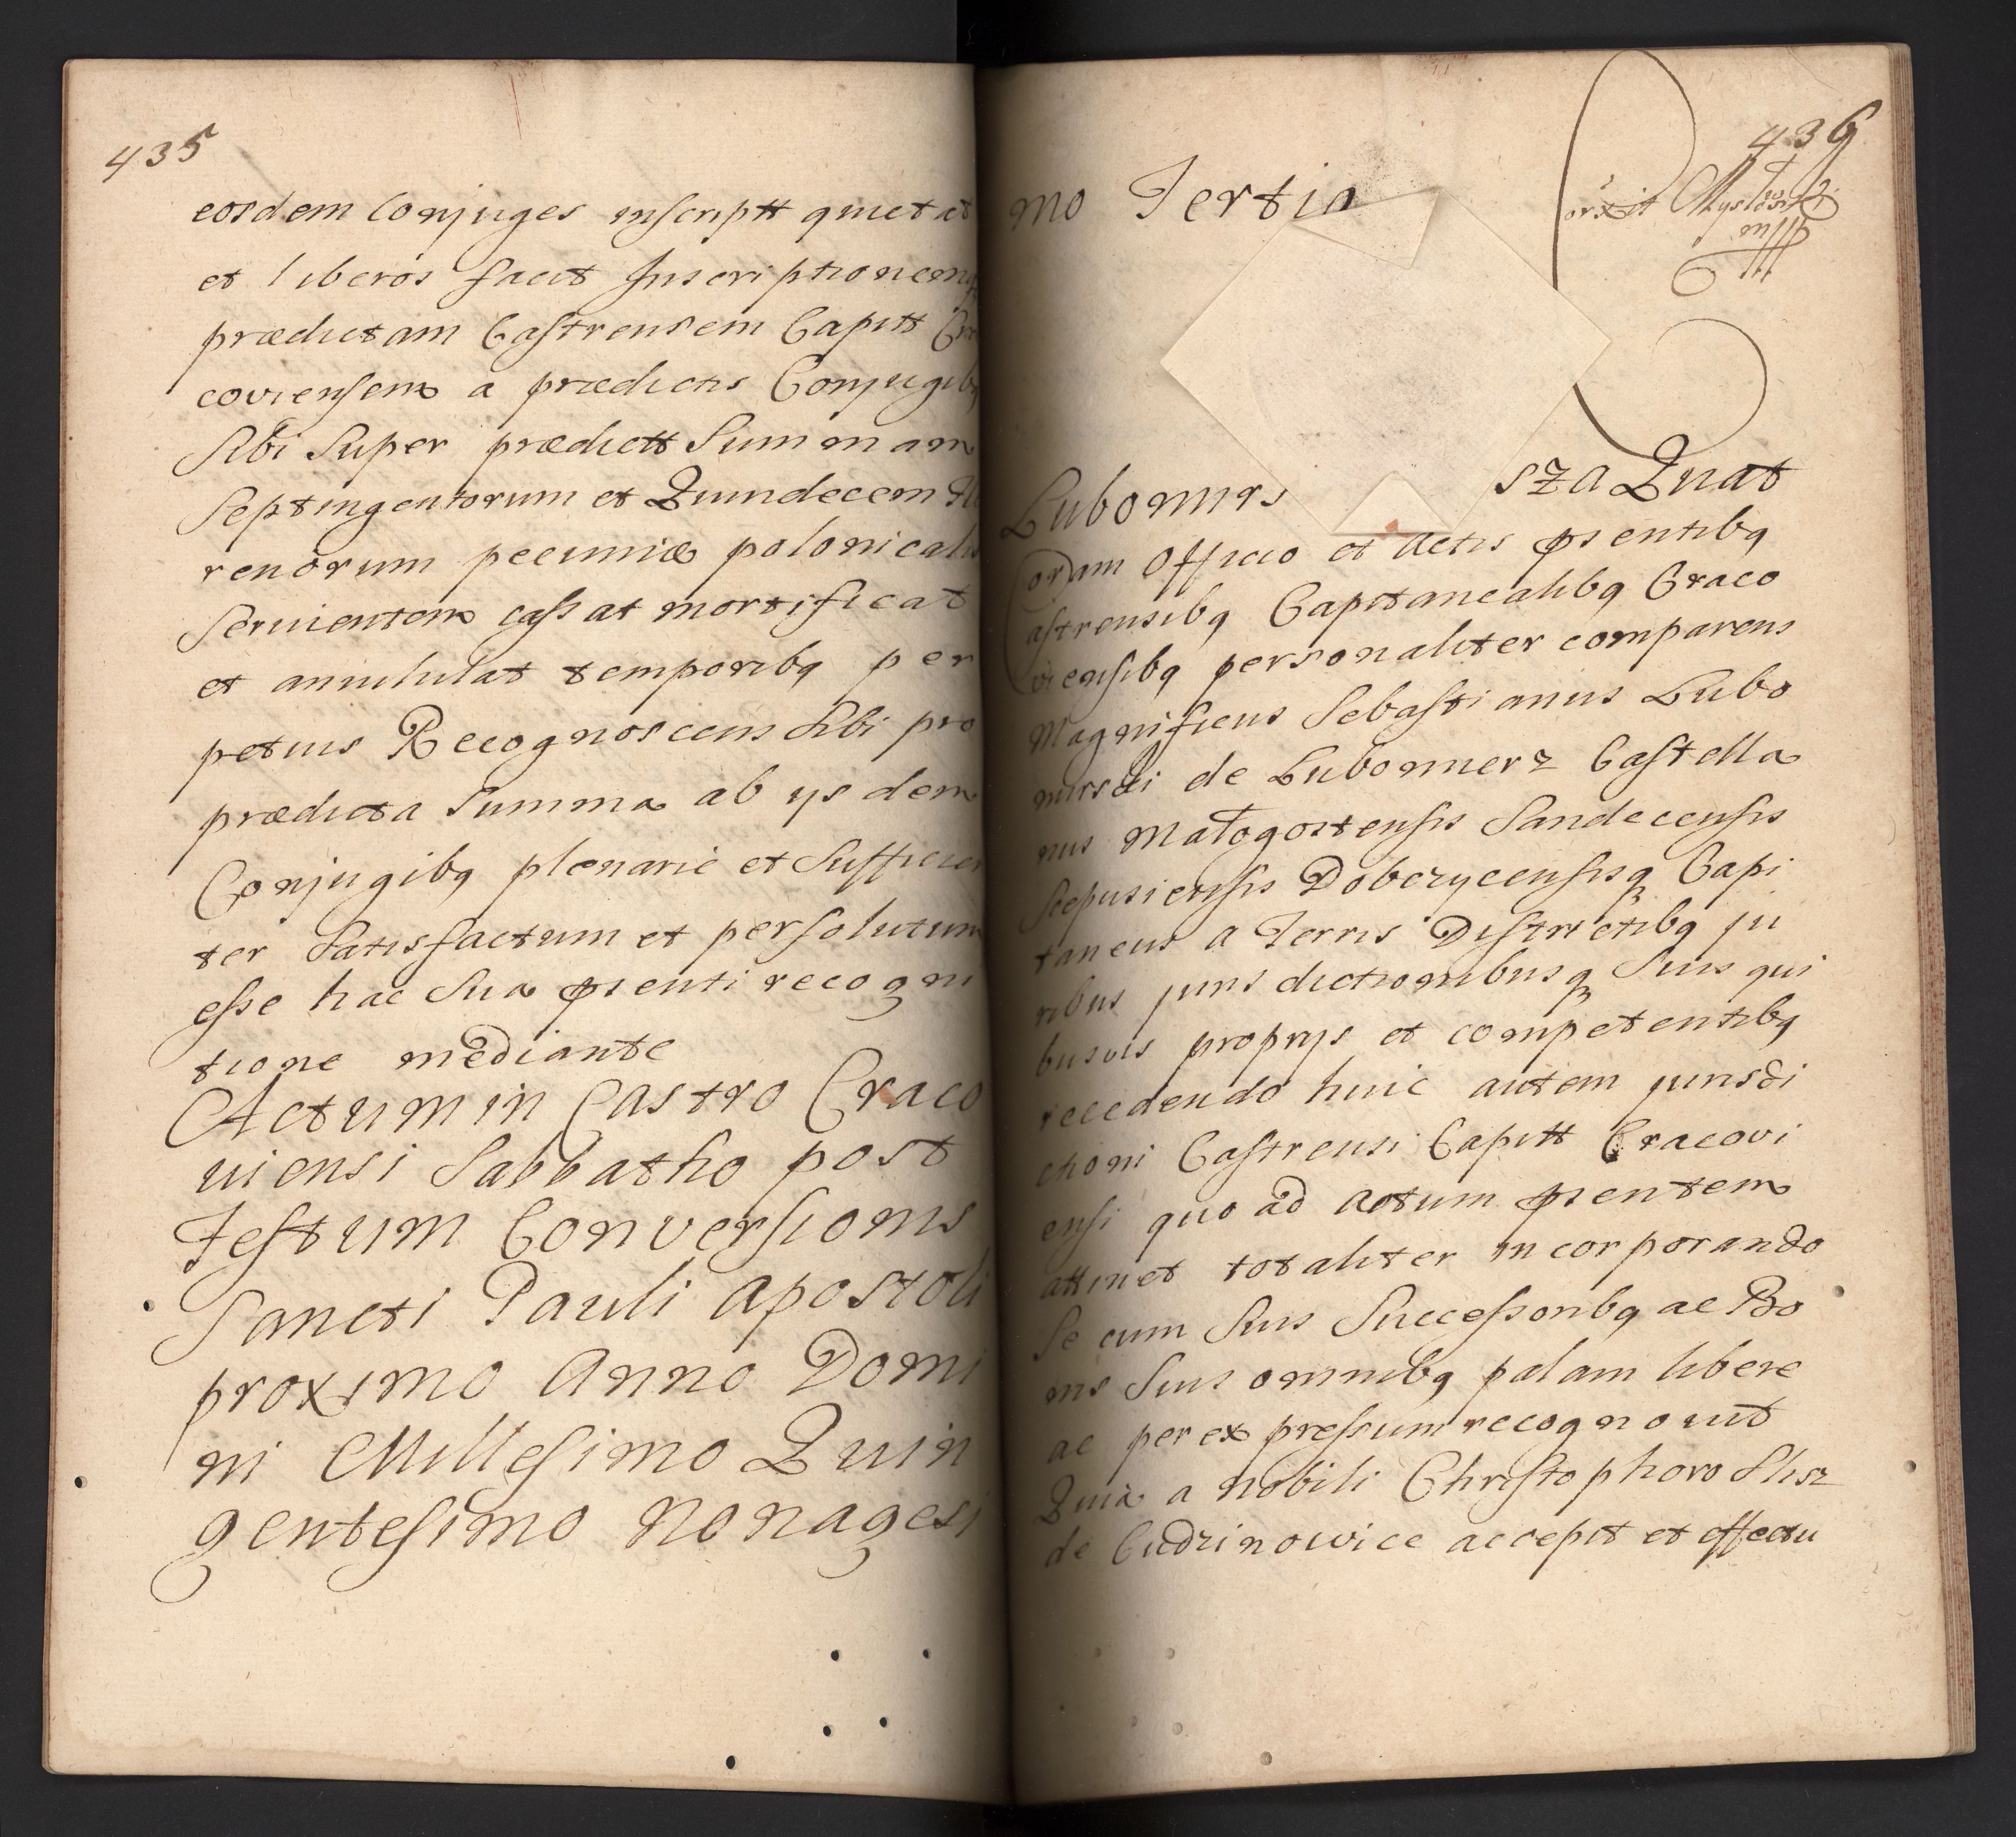 435
eosdem Conjuges inscriptt quietat
et liberos facit Inscriptionemq
prædictam Castrensem Capitt Cra
coviensem a prædictis Conjugibq
Sibi Super prædictt Summam
Septingentorum et Quindecem Flo
renorum pecuniæ polonicalis
Servientem cassat mortificat
et annihilat temporibq per
petuis Recognoscens Sibi pro
prædicta Summa ab ijsdem
Conjugibq plenarie et Sufficien
ter Satisfactum et persolutum
esse hac Sua pſenti recogni
tione mediante
Actum in Castro Craco
viensi Sabbatho post
Festum Conversionis
Sancti Pauli Apostoli
proximo Anno Domi
ni Millesimo Quin
gentesimo Nonagesi
436
mo Tertio
Lubomirs sza Quat
Coram Officio et Actis pſentibq
Castrensibq Capitanealibq Craco
viensibq personaliter comparens
Magnificus Sebastianus Lubo
mirski de Lubomierz Castella
nus Małogostensis Sandecensis
Scepusiensis Dobczycensisq Capi
taneus a Terris Districtibq ju
ribus jurisdictionibusq Suis qui
busvis proprijs et competentibq
recedendo huic autem jurisdi
ctioni Castrensi Capitt Cracovi
ensi quo ad Actum pſentem
attinet totaliter incorporando
Se cum Suis Successoribq ac Bo
nis Suis omnibq palam libere
ac per expressum recognovit
Quia a Nobili Christophoro Slisz
de Cudzinowice accepit et effectu